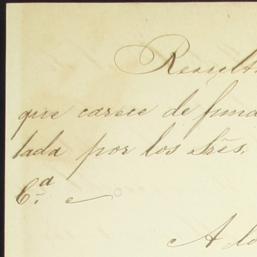 Result
que carece de funda
tada por los Sres.
C.ª
A lo